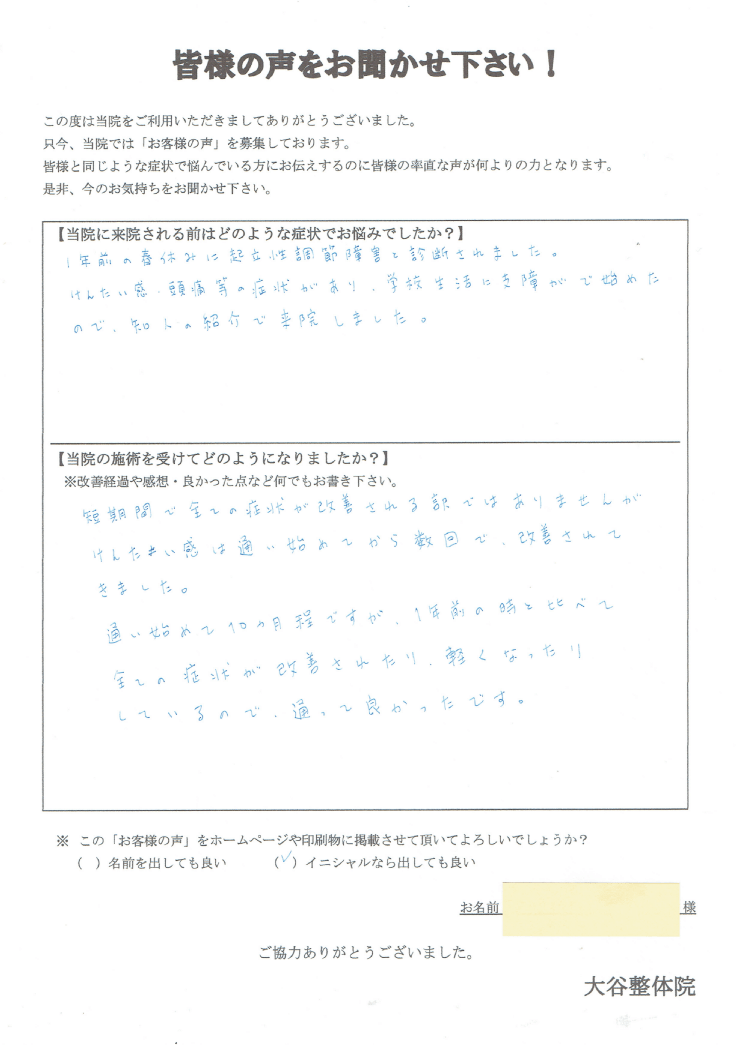 皆様の声をお聞かせ下さい！
この度は当院をご利用いただきましてありがとうございました。
只今、当院では「お客様の声」を募集しております。
皆様と同じような症状で悩んでいる方にお伝えするのに皆様の率直な声が何よりの力となります。
是非、今のお気持ちをお聞かせ下さい。
【当院に来院される前はどのような症状でお悩みでしたか？】
1年前の春休みに起立性調節障害と診断されました。
けんたい感、頭痛等の症状があり、学校生活に支障がで始めた
ので、知人の紹介で来院しました。
【当院の施術を受けてどのようになりましたか？】
※改善経過や感想・良かった点など何でもお書き下さい。
短期間で全ての症状が改善される訳ではありませんが
けんたい感は通い始めてから数回で、改善されて
きました。
通い始めて10ヵ月程ですが、1年前の時と比べて
全ての症状が改善されたり、軽くなったり
しているので、通って良かったです。
※ この「お客様の声」をホームページや印刷物に掲載させて頂いてよろしいでしょうか？
（ ）名前を出しても良い （✓）イニシャルなら出しても良い
お名前 様
ご協力ありがとうございました。
大谷整体院